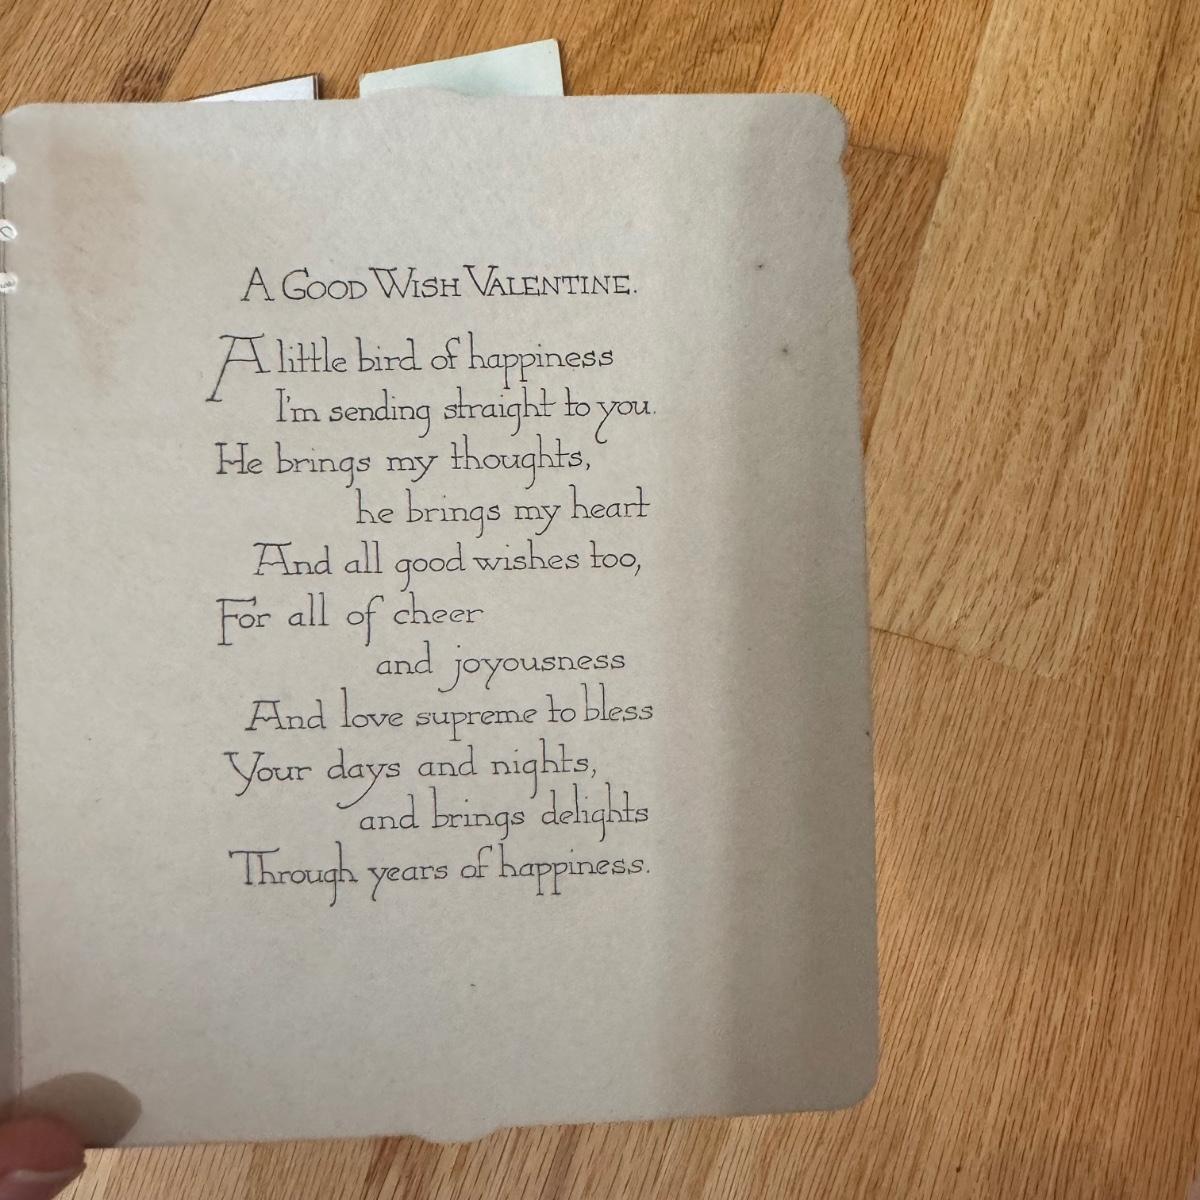 A GOOD WISH VALENTINE.
A little bird of happiness
I'm sending straight to you.
He brings my thoughts,
he brings my heart
And all good wishes too,
For all of cheer
and joyousness
And love supreme to bless
Your days and nights,
and brings delights
Through years of happiness.